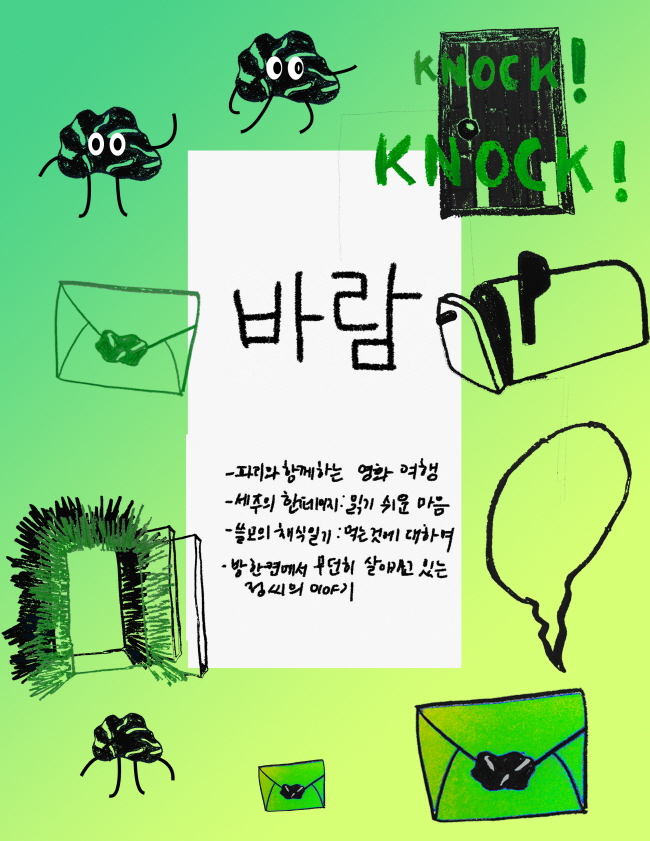 KNOCK!
KNOCK!
바람
-파리와 함께하는 영화 여행
-세주의 한페이지: 읽기 쉬운 마음
-쓸모의 채식일기: 먹는것에 대하여
-방 한켠에서 무던히 살아가고 있는
정씨의 이야기